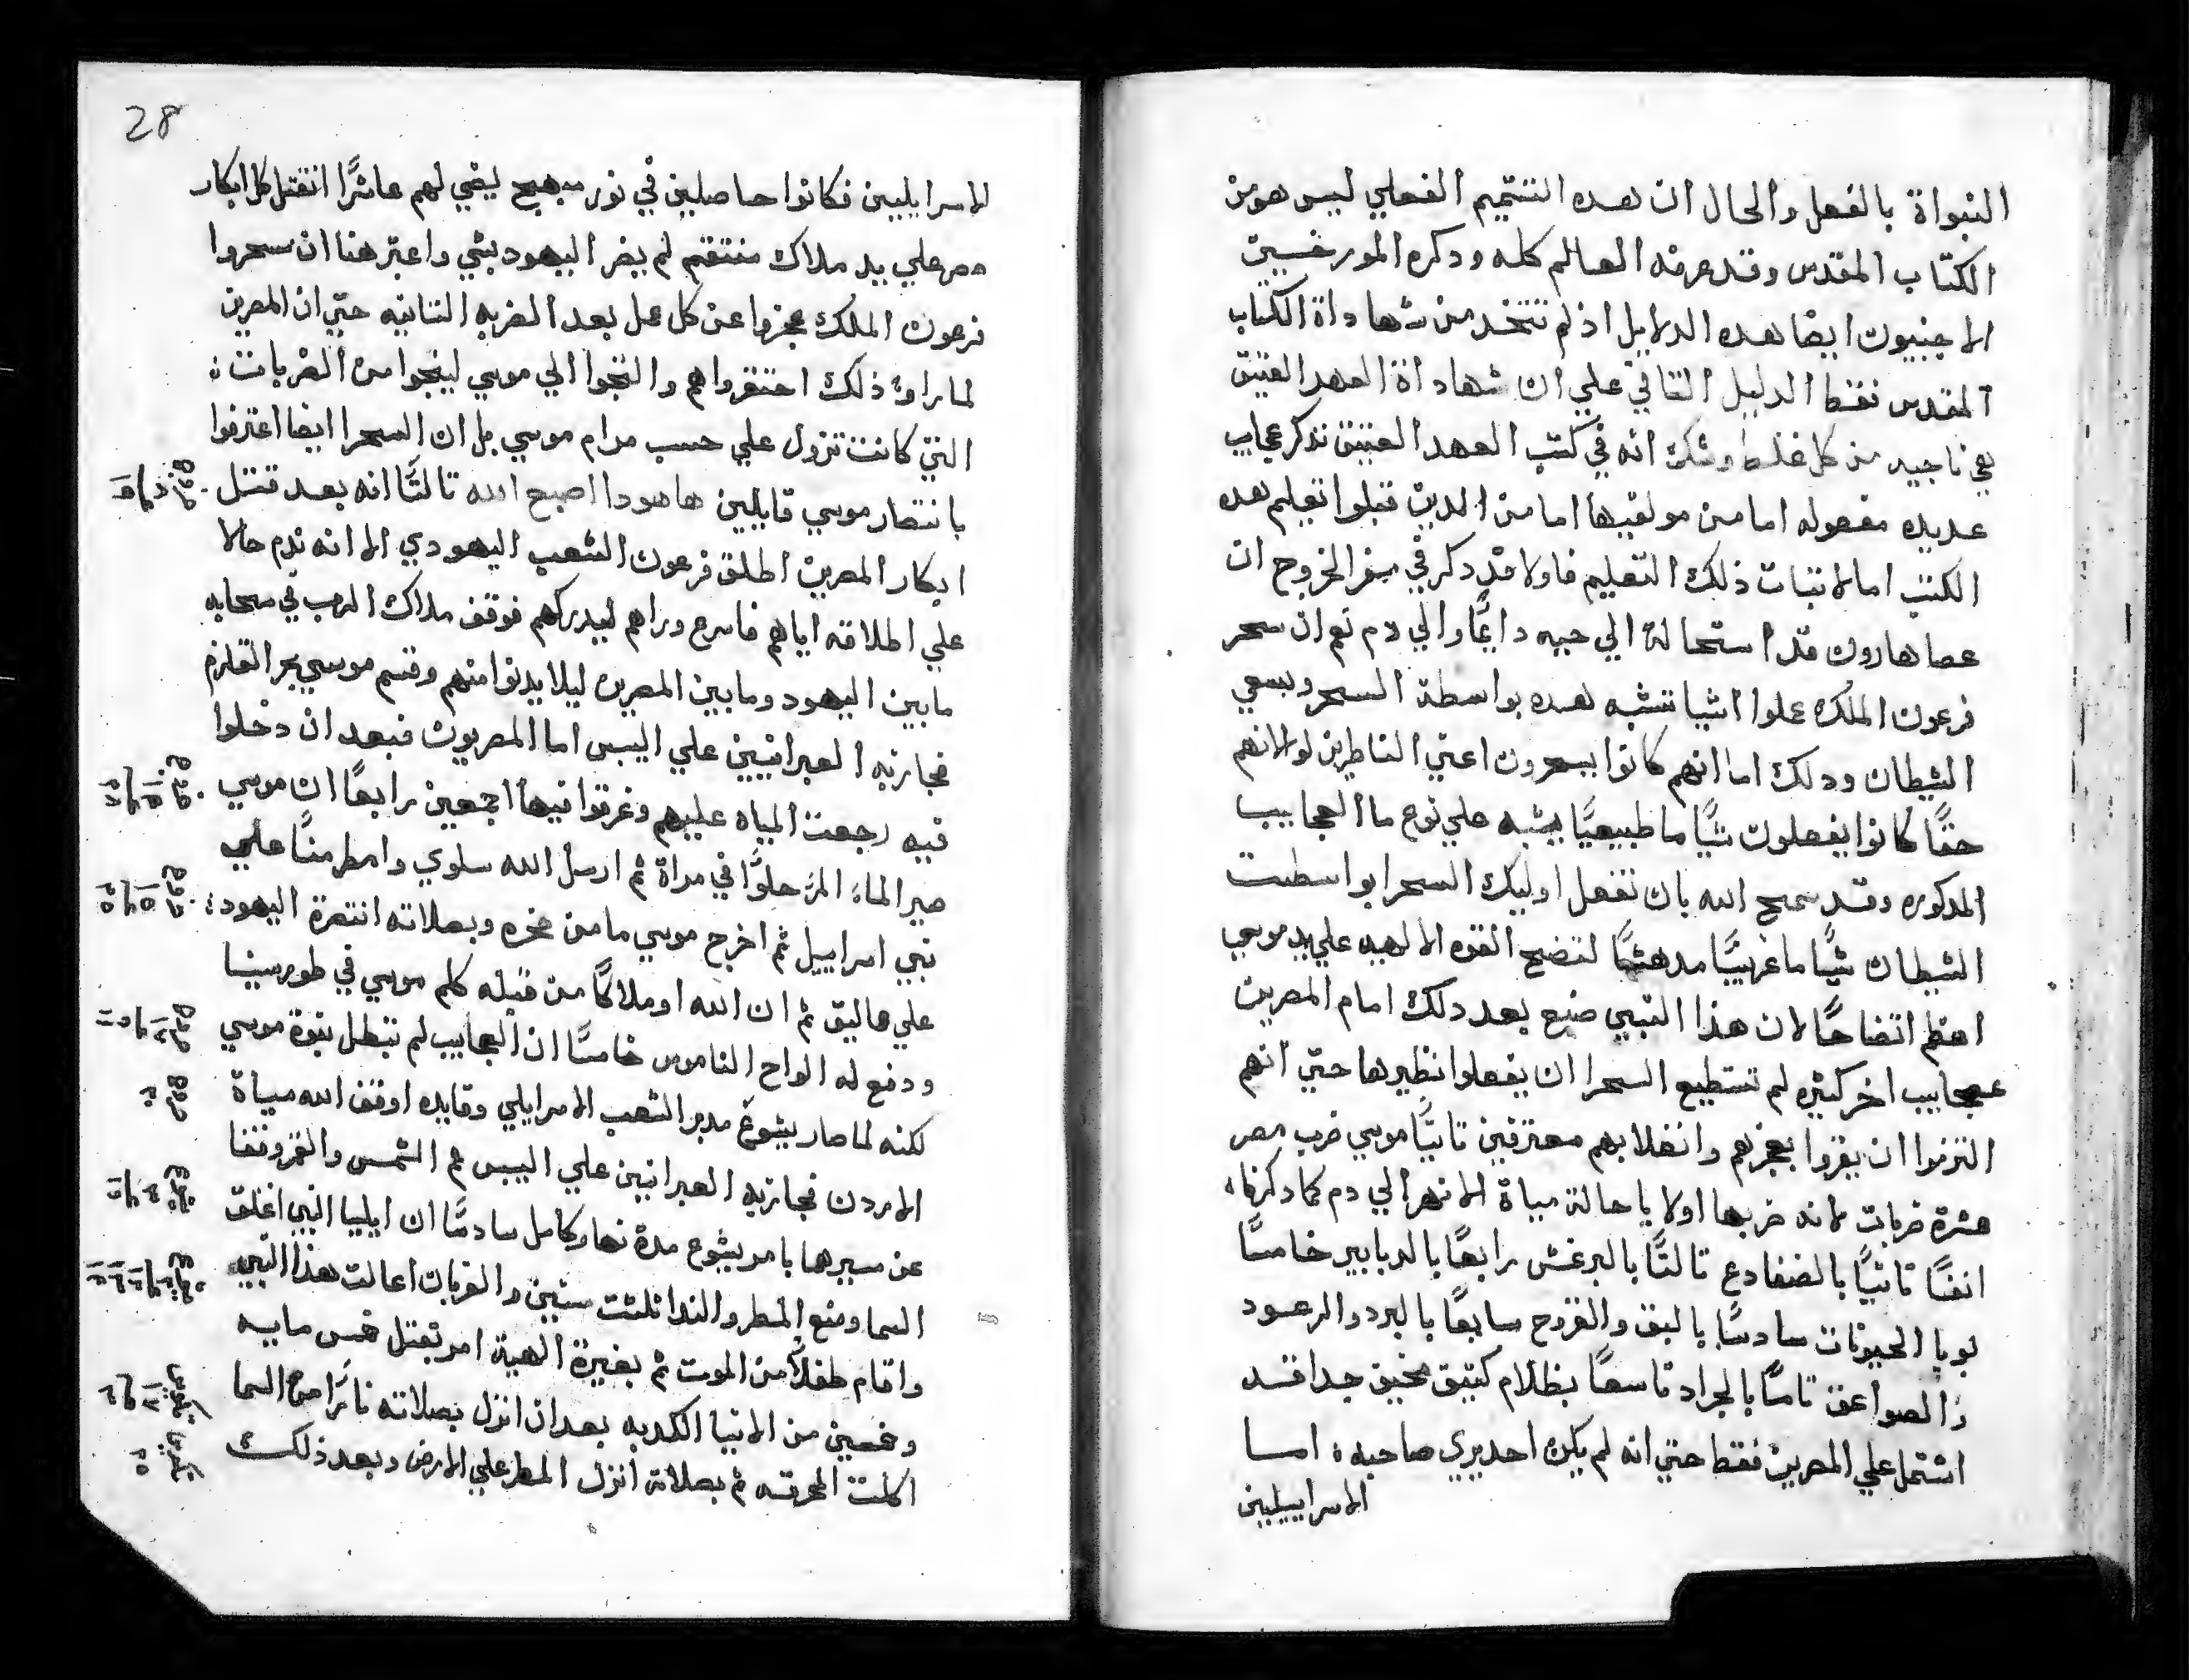 النبواة بالفعل والحال ان هده التتميم الفعلي ليس هو من
الكتاب المقدس وقد عرفه العالم كله ودكره المورخين
الاجنبيون ايضا هده الدلايل اذ لم تتخد من شهاداة الكتاب
المقدس فقط الدليل التاني علي ان شهاداة العهد العتيق
هي ناجيه من كل غلط وشك انه في كتب العهد العتيق تدكر عجايب
عديده مفعوله اما من مولفيها اما من الدين قبلوا تعليم هده
الكتب اما لاتبات ذلك التعليم فاولا قد دكر في سفر الخروج ان
عصا هارون قد استحالة الي حيه دايمًا والي دم نعم ان سحر
فرعون الملك عملوا اشيا تشبه هده بواسطة السحر وبسعي
الشيطان ودلك اما انهم كانوا يسحرون اعين الناظرين لولانهم
حقًا كانوا يفعلون شيًا ما طبيعيًا يشبه علي نوع ما العجايب
المدكوره وقد سمح الله بان تفعل اوليك السحرا بواسطت
الشيطان شيًا ما غريبًا مدهشًا لتضح القوه الالهيه علي يد موسي
اعظم اتضاحًا لان هذا النبي صنع بعد دلك امام المصريين
عجايب اخر كثيره لم تستطيع السحرا ان يفعلوا نظيرها حتي انهم
التزموا ان يقروا بعجزهم وانغلابهم معترفين تانيًا موسي ضرب مصر
عشرة ضربات لانه ضربها اولا باحالة مياة الانهر الي دم كما دكرناه
انفًا تانيًا بالضفادع تالتًا بالبرغش رابعًا بالدبابير خامسًا
بوبا الحيونات سادسًا بالبق والقروح سابعًا بالبرد والرعود
والصواعق تامنًا بالجراد تاسعًا بظلام كتيق مخيق جدا قد
اشتمل علي المصريين فقط حتي انه لم يكن احد يري صاحبه، اما
الاسراييليين
28
الاسرايليين فكانوا حاصلين في نور مبهج يضي لهم عاشرًا انقتل كل ابكار
مصر علي يد ملاك منتقم لم يضر اليهود بشي واعتبر هنا ان سحروا
فرعون الملك عجزوا عن كل عمل بعد الضربه التانيه حتي ان المصرين
لما راوا ذلك احتقرواهم والتجوا الي موسي لينجوا من الضربات
التي كانت تزول علي حسب مرام موسي بل ان السحرا ايضا اعترفوا
بانتصار موسي قايلين هاهودا اصبع الله تالتًا انه بعد قتل
ابكار المصرين اطلق فرعون الشعب اليهودي الا انه ندم حالا
علي اطلاقه اياهم فاسرع وراهم ليدركهم فوقف ملاك الرب في سحابه
مابين اليهود ومابين المصرين ليلا يدنوا منهم وقسم موسي بحر القلزم
فجازبه العبرانيين علي اليبس اما المصريون فبعد ان دخلوا
فيه رجعت المياه عليهم وغرقوا فيها اجمعين رابعًا ان موسي
صير الماء المر حلوًا في مراة ثم ارسل الله سلوي وامطر منًا علي
بني اسراييل ثم اخرج موسي ما من صخره وبصلاته انتصرة اليهود
علي عماليق ثم ان الله او ملاكًا من قبله كلم موسي في طورسينا
ودفع له الواح الناموس خامسًا ان العجايب لم تبطل بنوة موسي
لكنه لما صار يشوع مدبر الشعب الاسرايلي وقايده اوقف الله مياة
الاردن فجازبه العبرانيين علي اليبس ثم الشمس والقمر وقفا
عن سيرهما بامر يشوع مدة نهار كامل سادسًا ان ايليا النبي اغلق
السما ومنع المطر والندا ثلثت سنين والغربان اعالت هذا النبي
واقام طفلًا من الموت ثم بغيرة الهية امر بقتل خمس مايه
وخمسين من الانبيا الكدبه بعد ان انزل بصلاته نارًا من السما
اكلت المحرقه ثم بصلاته انزل المطر علي الارض وبعد ذلك
خروج
خروج
خروج
خروج
خروج
يشوع
تكوين